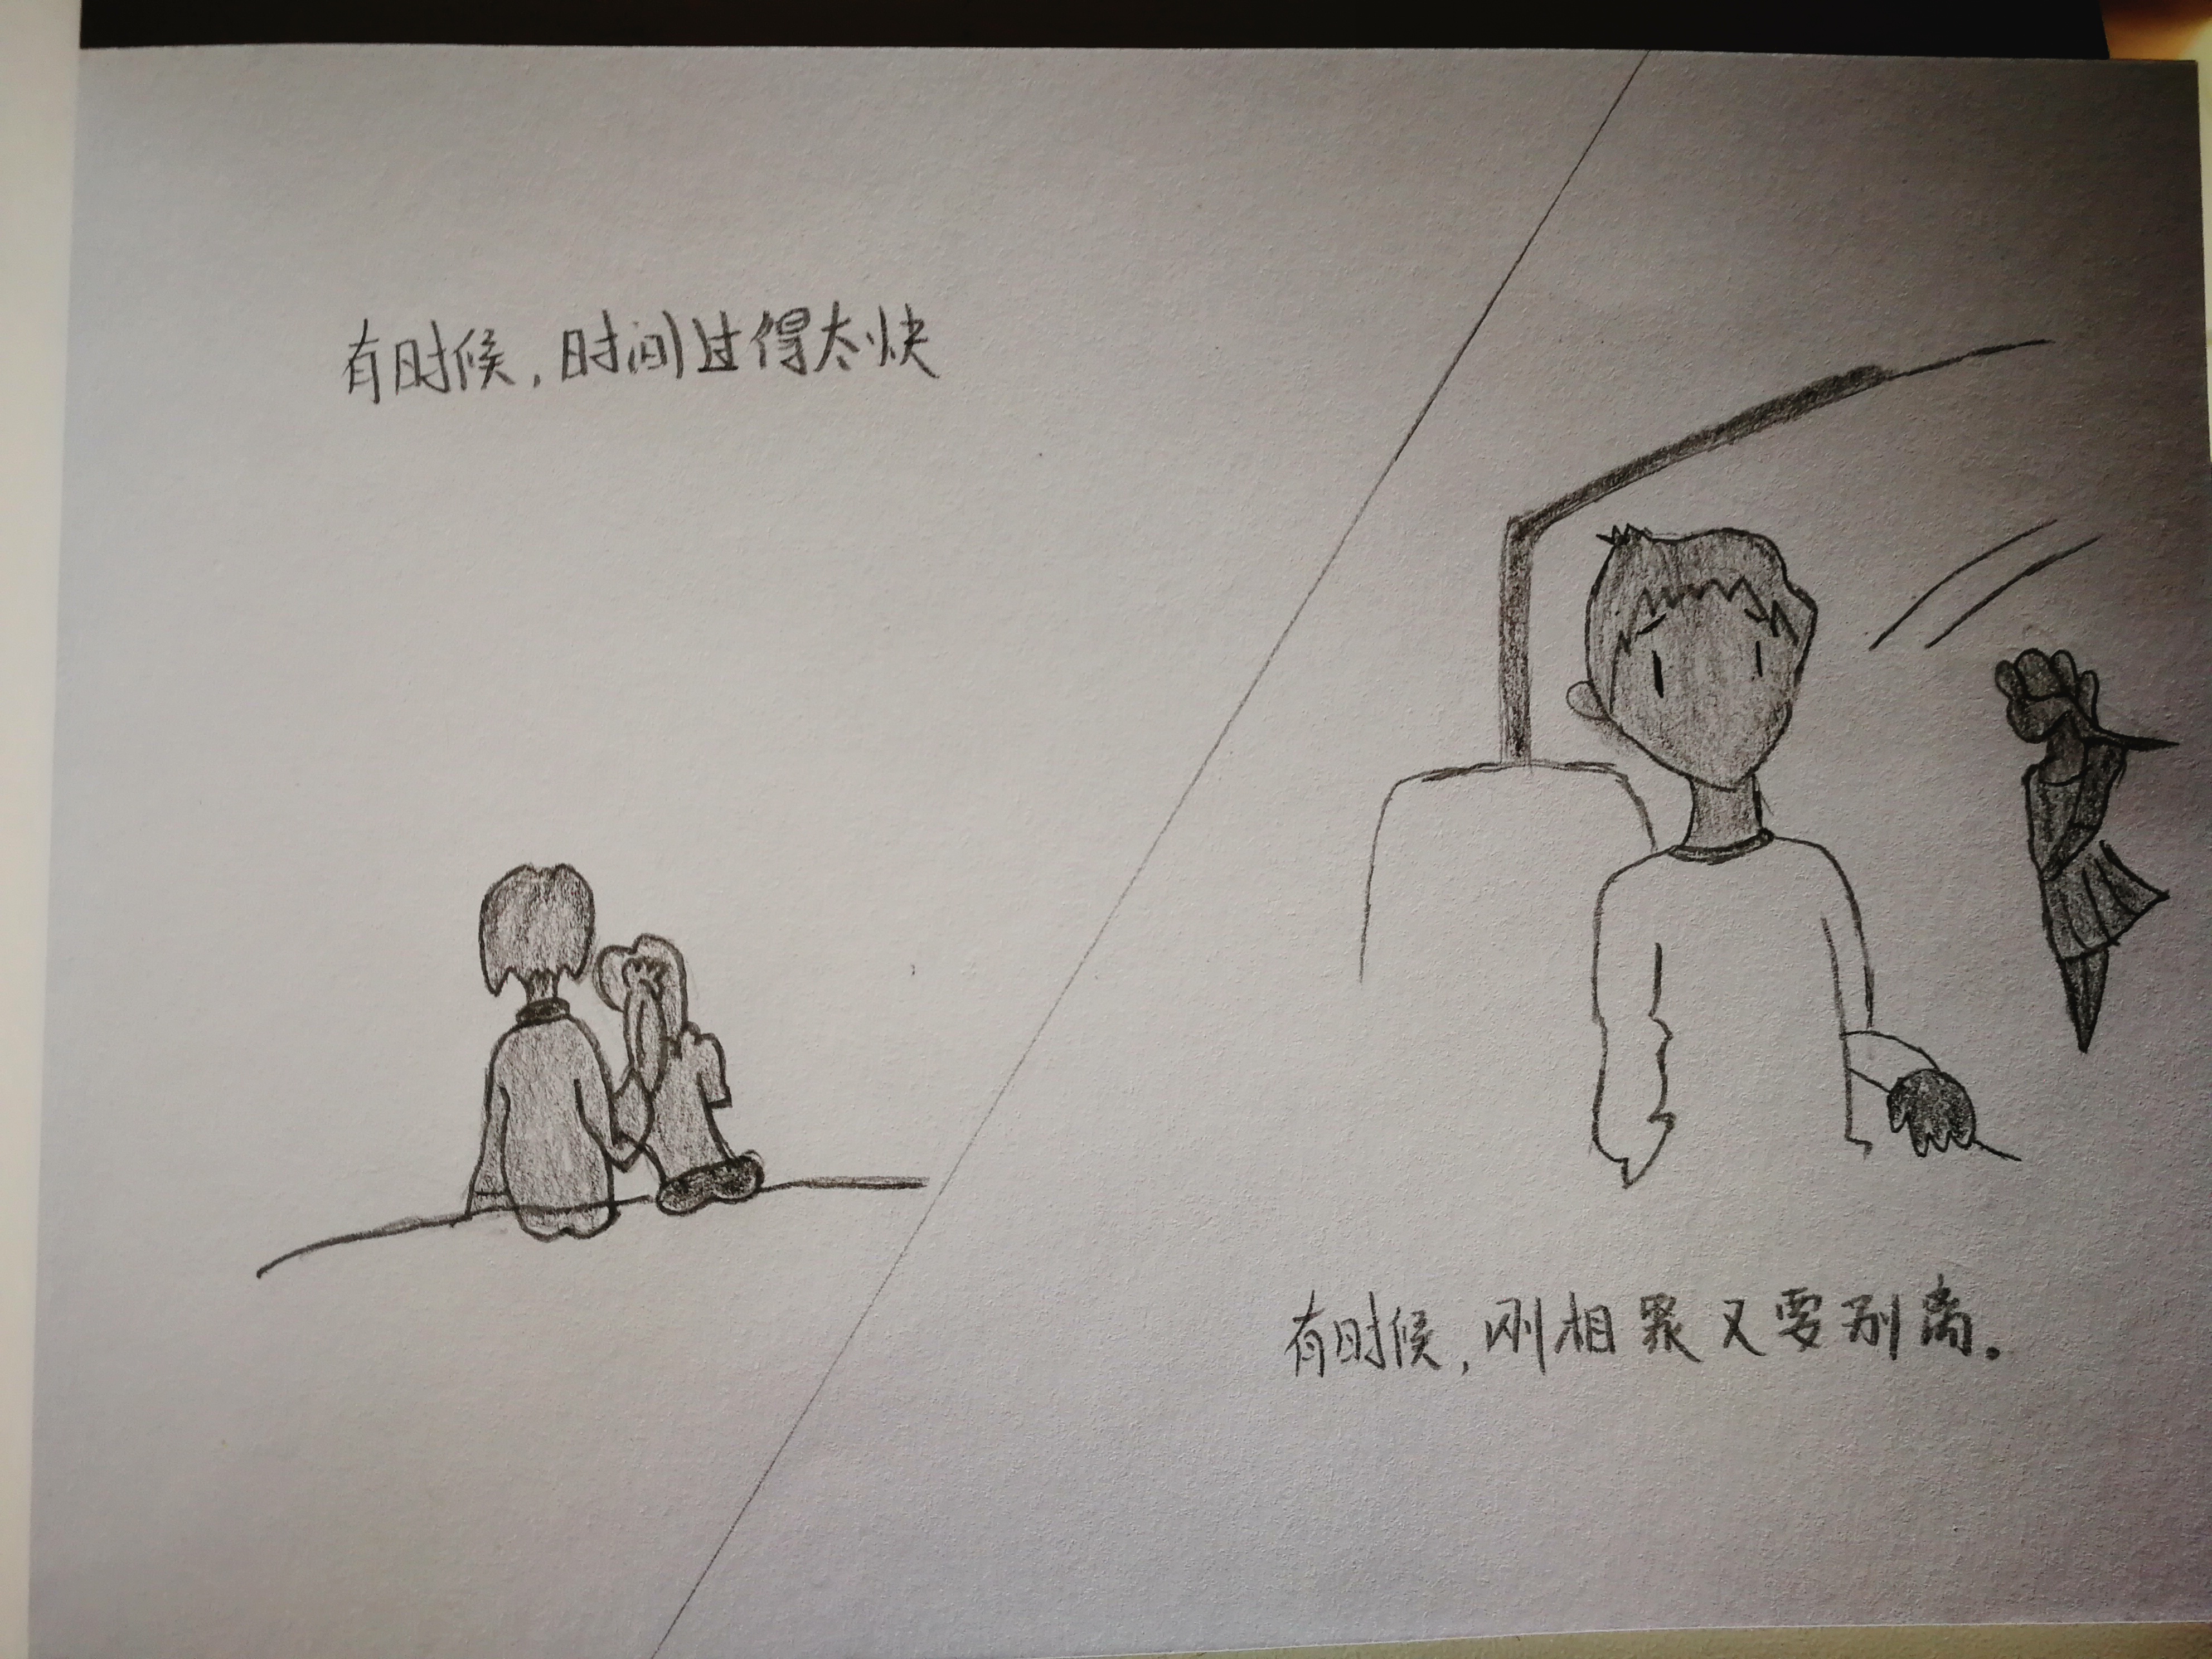 有时候，时间过得太快
有时候，刚相聚又要别离。